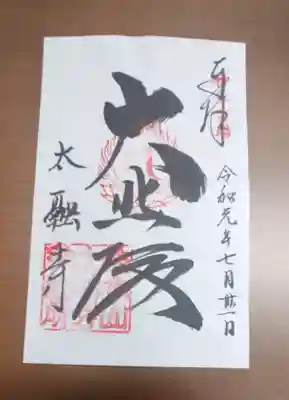 奉拝
令和元年七月 日
大悲殿
太融寺